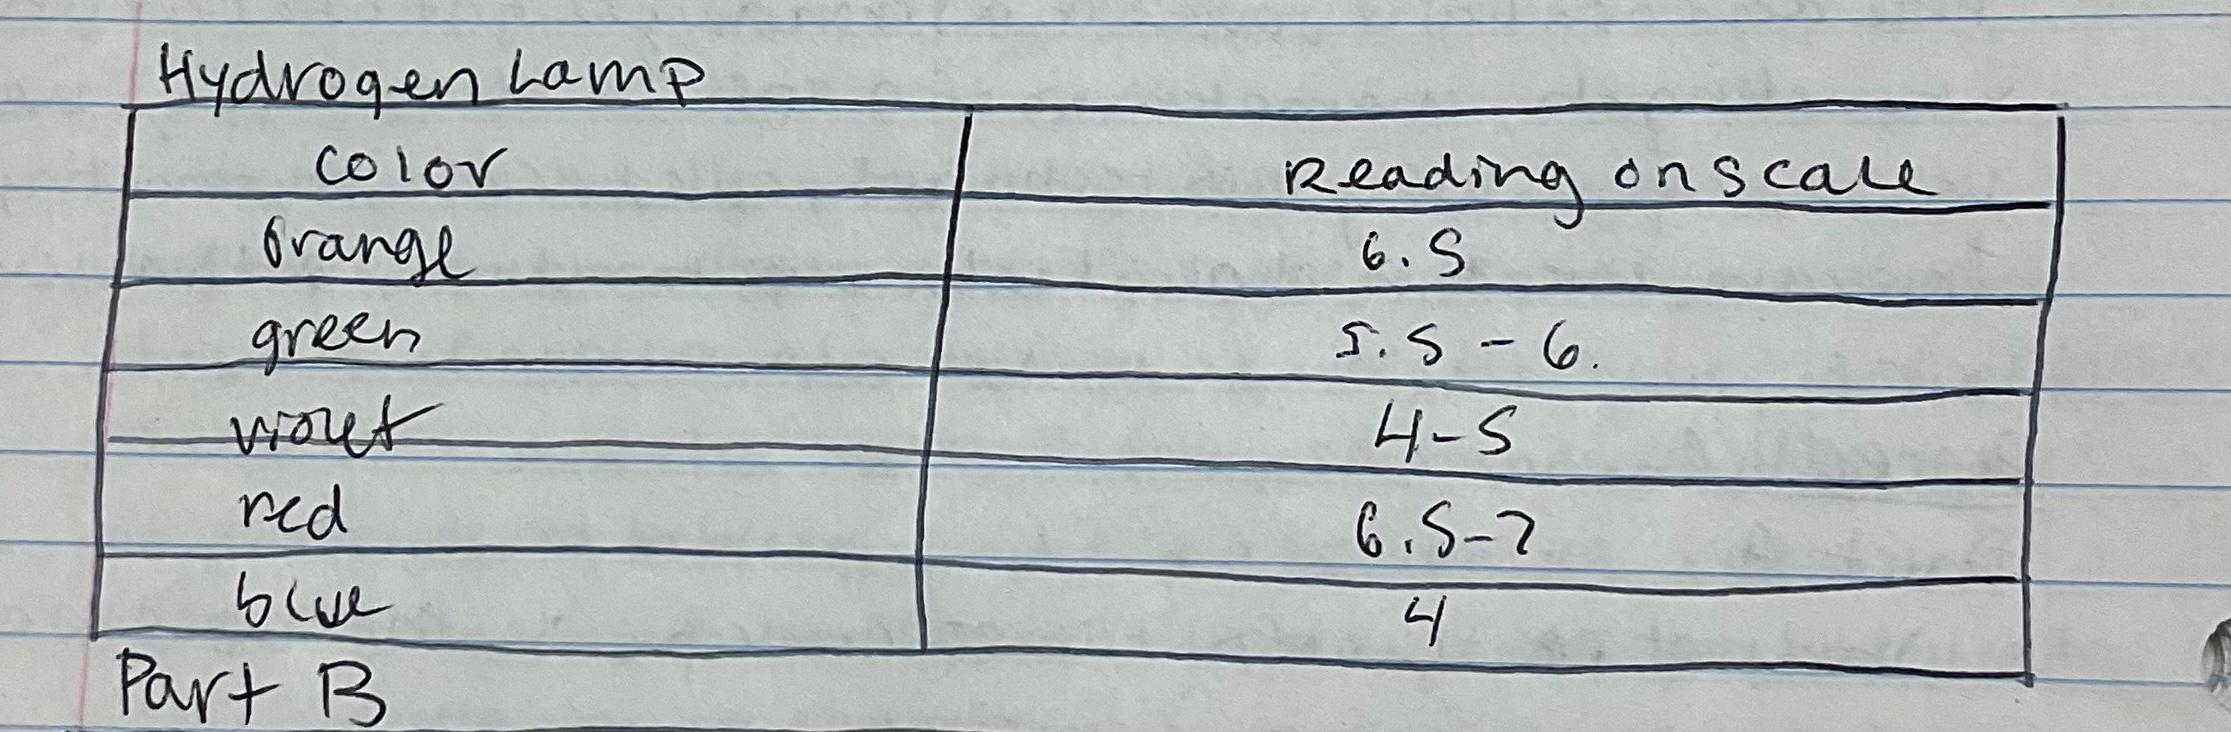 Hydrogen Lamp
color Reading on scale
Orange 6.5
green 5.5 - 6.
violet 4-5
red 6.5-7
blue 4
Part B